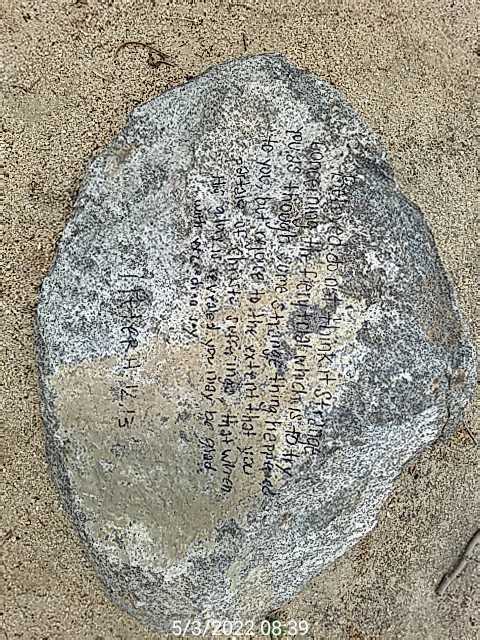 Beloved do not think it strange
concerning the feiry trial which is to try
you as though some strange thing happened
to you, but rejoice to the extent that you
partake of Christs sufferings, that when
His glory is revealed, you may be glad
with exceeding joy
1 Peter 4:12,13
5/3/2022 08:39